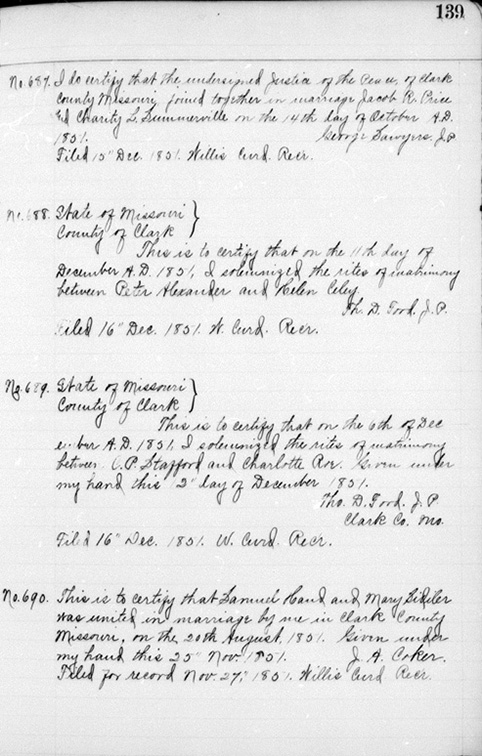 139
No. 687. I do certify that the undersigned Justice of the Peace, of Clark
County Missouri, joined together in marriage Jacob R. Price
and Charity L. Summerville on the 14th day of October A.D.
1851. George Sawyers, J.P.
Filed 15" Dec. 1851. Willis Curd. Recr.
No. 688. State of Missouri }
County of Clark
This is to certify that on the 11th day of
December A.D. 1851, I solemnized the rites of matrimony
between Peter Alexander and Helen Cely.
Th. D. Good. J.P.
Filed 16" Dec. 1851. W. Curd. Recr.
No. 689. State of Missouri }
County of Clark
This is to certify that on the 6th of Dec
ember A.D. 1851, I solemnized the rites of matrimony
between O.P. Stafford and Charlotte Given under
my hand this day of December 1851.
Tho. D. Good. J.P
Clark Co. Mo.
Filed 16" Dec. 1851. W. Curd. Recr.
No. 690. This is to certify that Samuel Hand and Mary
was united in marriage by me in Clark County
Missouri, on the 20th August, 1851. Given under
my hand this 25" Nov. 1851. J. A. Coker.
Filed for record Nov. 27," 1851. Willis Curd Recr.